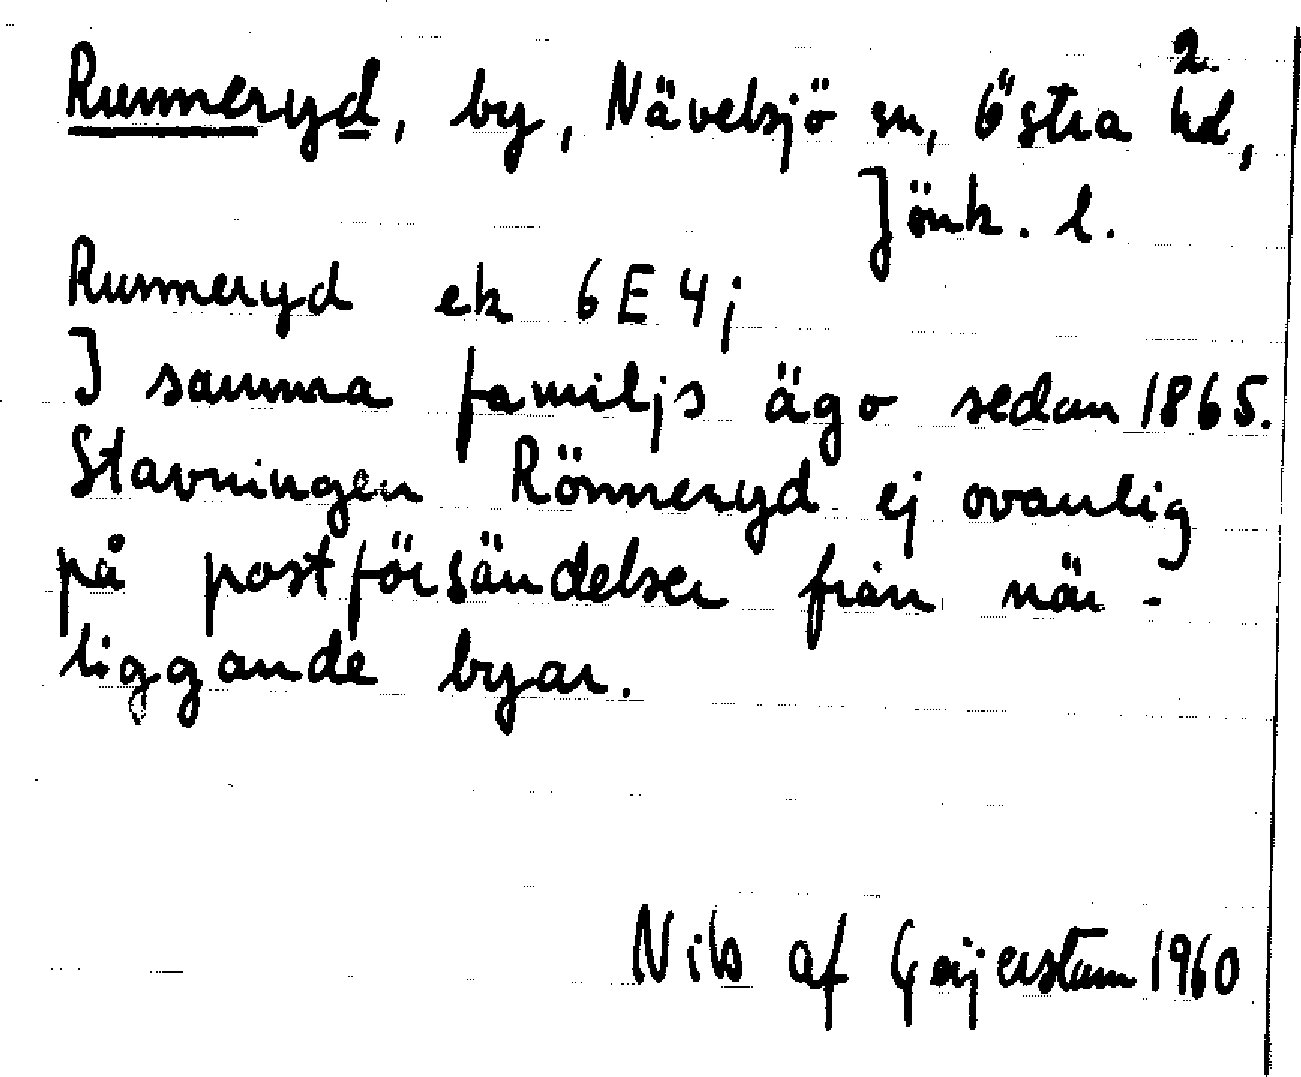 2.
Runneryd, by, Nävelsjö sn, Östra hd,
Jönk. l.
Runneryd ek 6E4j
I samma familjs ägo sedan 1865.
Stavningen Rönneryd ej ovanlig
på postförsändelser från när-
liggande byar.
Nils af Geijerstam 1960